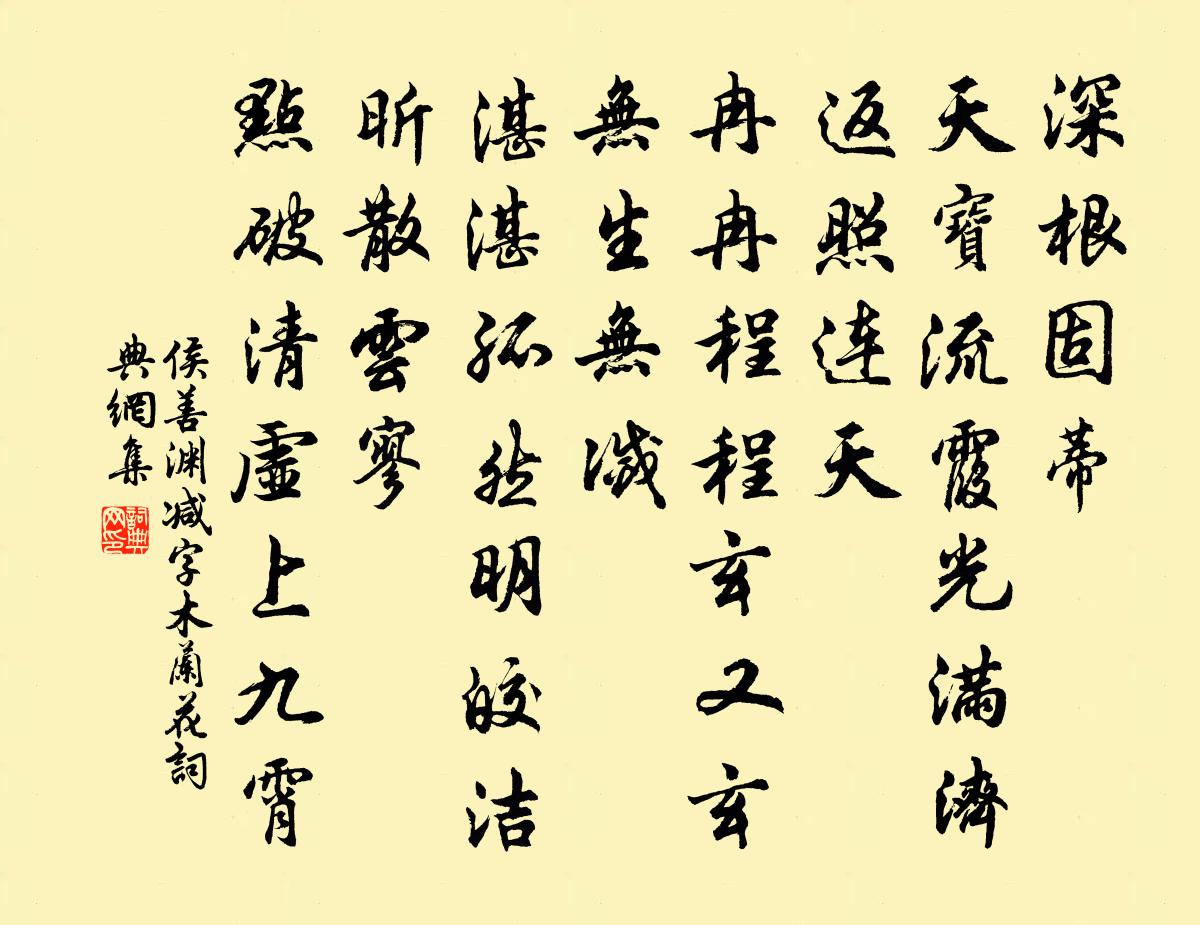 深根固蒂
天寶流霞光滿濟
返照連天
冉冉程程玄又玄
無生無滅
湛湛孤然明皎洁
昕散雲寥
點破清虛上九霄
侯善渊减字木蘭花詞
典網集
詞典网印